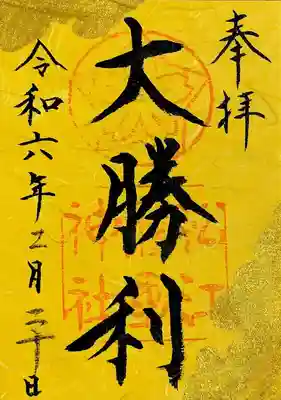 奉拝
大勝利
令和六年二月二十日